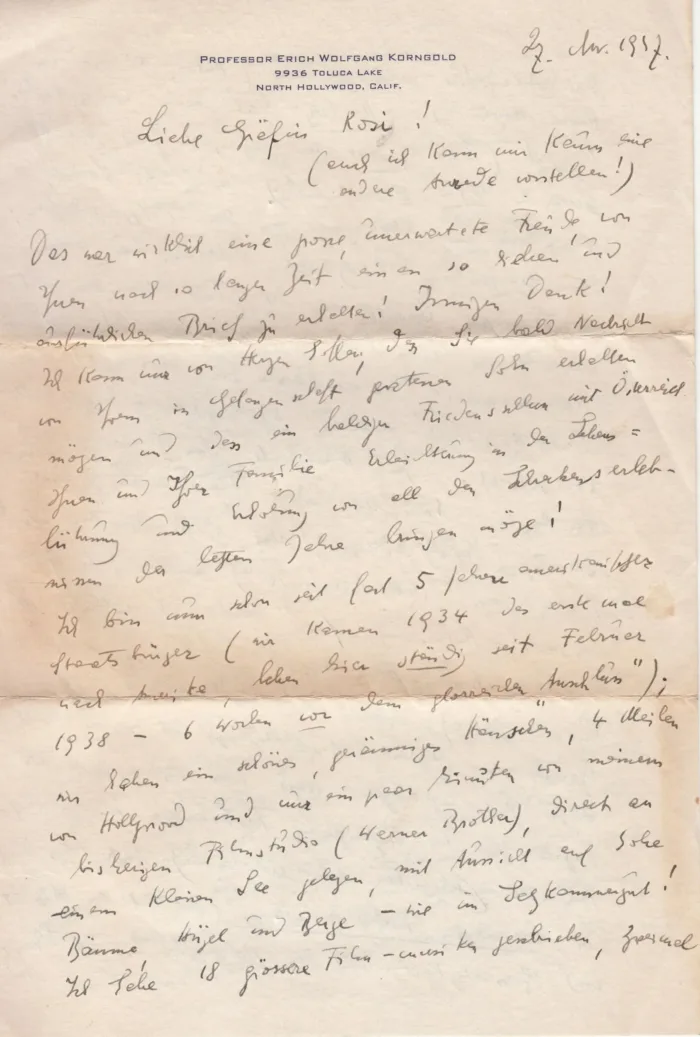 PROFESSOR ERICH WOLFGANG KORNGOLD
9936 TOLUCA LAKE
NORTH HOLLYWOOD, CALIF.
27. Nov. 1947.
Liebe Gräfin Rosi!
(auch ich kann mir kaum eine
andere Anrede vorstellen!)
Das war wirklich eine grosse, unerwartete Freude, von
Ihnen nach so langer Zeit einen so lieben und
ausführlichen Brief zu erhalten! Innigen Dank!
Ich kann nur von Herzen hoffen, dass Sie bald Nachricht
von Ihrem in Gefangenschaft geratenen Sohn erhalten
mögen und dass ein baldiger Friedensschluss mit Österreich
Ihnen und Ihrer Familie Erleichterung in der Lebens=
führung und Erholung von all den Schreckenserleb-
nissen der letzten Jahre bringen möge!
Ich bin nun schon seit fast 5 Jahren amerikanischer
Staatsbürger (wir kamen 1934 das erste mal
nach Amerika, leben hier ständig seit Februar
1938 – 6 Wochen vor dem glorreichen "Anschluss");
wir haben ein schönes, geräumiges "Häuschen", 4 Meilen
von Hollywood und nur ein paar Minuten von meinem
bisherigen Filmstudio (Warner Brother), direct an
einem kleinen See gelegen, mit Aussicht auf hohe
Bäume, Hügel und Berge – wie im Salzkammergut!
Ich habe 18 grössere Film-musiken geschrieben, zweimal